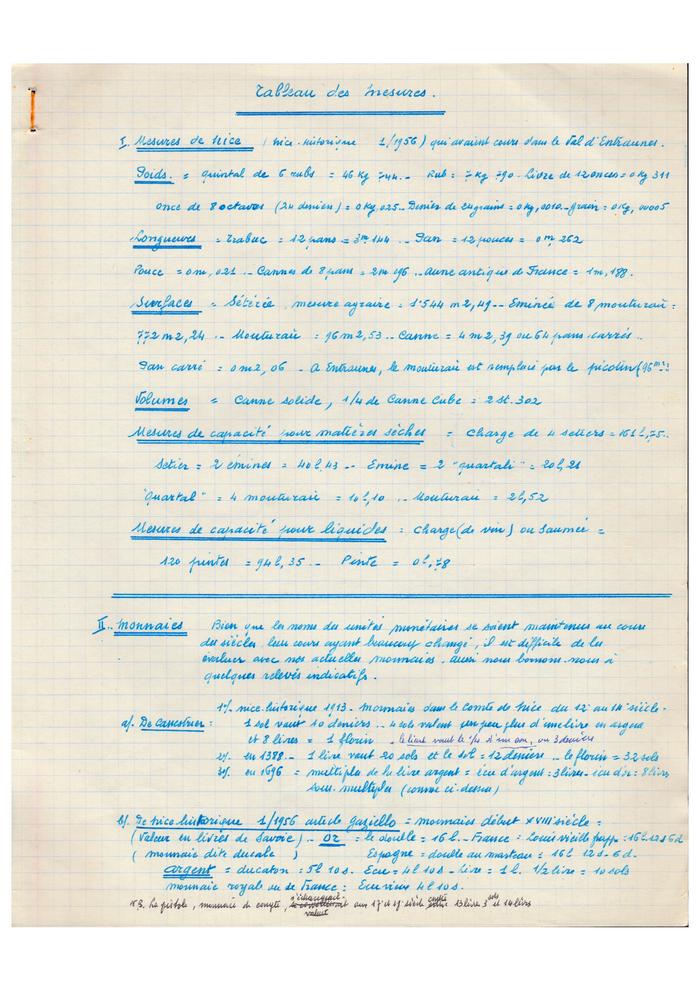 Tableau des mesures.
I. Mesures de Nice (Nice-Historique 1/1956) qui avaient cours dans le Val d'Entraunes.
Poids. = quintal de 6 rubs = 46 Kg 744.- Rub = 7 Kg 790- Livre de 12 onces = 0 Kg 311
once de 8 octaves (24 deniers) = 0 Kg 025.. Denier de 24 grains = 0 Kg, 0010.- grain = 0 Kg, 00005
Longueurs = Trabuc = 12 pans = 3m 144 .. Pan = 12 pouces = 0m, 262
Pouce = 0m, 021 .. Cannes de 8 pans = 2m 096 .. aune antique de France = 1m, 188.
Surfaces = Sétérée, mesure agraire = 1.544 m2, 49 .. Eminée de 8 mouturaü =
772 m2, 24 .. Mouturaü = 96 m2, 53 .. Canne = 4 m2, 39 ou 64 pans carrés ..
Pan carré = 0 m2, 06 - A Entraunes, le mouturaü est remplacé par le picotin (96 m2)
Volumes = Canne solide, 1/4 de Canne Cube = 2 st. 302
Mesures de capacité pour matières sèches = charge de 4 setiers = 161 l, 75..
Setier = 2 émines = 40 l, 43 .. Emine = 2 "quartali" = 20 l, 21
"Quartal" = 4 mouturaü = 10 l, 10 .. Mouturaü = 2 l, 52
Mesures de capacité pour liquides = charge (de vin) ou Saumée =
120 pintes = 94 l, 35 .. Pinte = 0 l, 78
II.. Monnaies Bien que les noms des unités monétaires se soient maintenus au cours
des siècles, leur cours ayant beaucoup changé, il est difficile de les
évaluer avec nos actuelles monnaies. aussi nous bornons-nous à
quelques relevés indicatifs.
1°/. nice-historique 1913 - monnaies dans le Comté de Nice du 12e au 14e siècle -
a/. De Canestrier : 1 sol vaut 10 deniers .. 4 sols valent un peu plus d'une livre en argent
et 8 livres = 1 florin .. le liard vaut le 1/4 d'un sou, ou 3 deniers
2°/. en 1388 - 1 livre vaut 20 sols et le sol = 12 deniers .. le florin = 32 sols
3°/. en 1696 = multiples de la livre argent = écu d'argent : 3 livres - écu d'or = 8 livres
sous. multiples (comme ci-dessus)
b/. De nice historique 1/1956 article Gaziello = monnaies début XVIII siècle =
(Valeur en livres de Savoie) .. Or = le double = 16 l. - France = Louis vieille frappe = 16 l. 12 s 6 d
(monnaie dite ducale) Espagne = double au marteau = 16 l 12 s. 6 d.
argent = ducaton = 5 l 10 s. Ecu = 4 l 10 s - Livre = 1 l. 1/2 livre = 10 sols
monnaie royal ou de France : Ecu vieux 4 l 10 s.
N.B. La pistole, monnaie de compte, s'échangeait aux 17e et 18e siècle contre 13 livres 3 sols et 14 livres